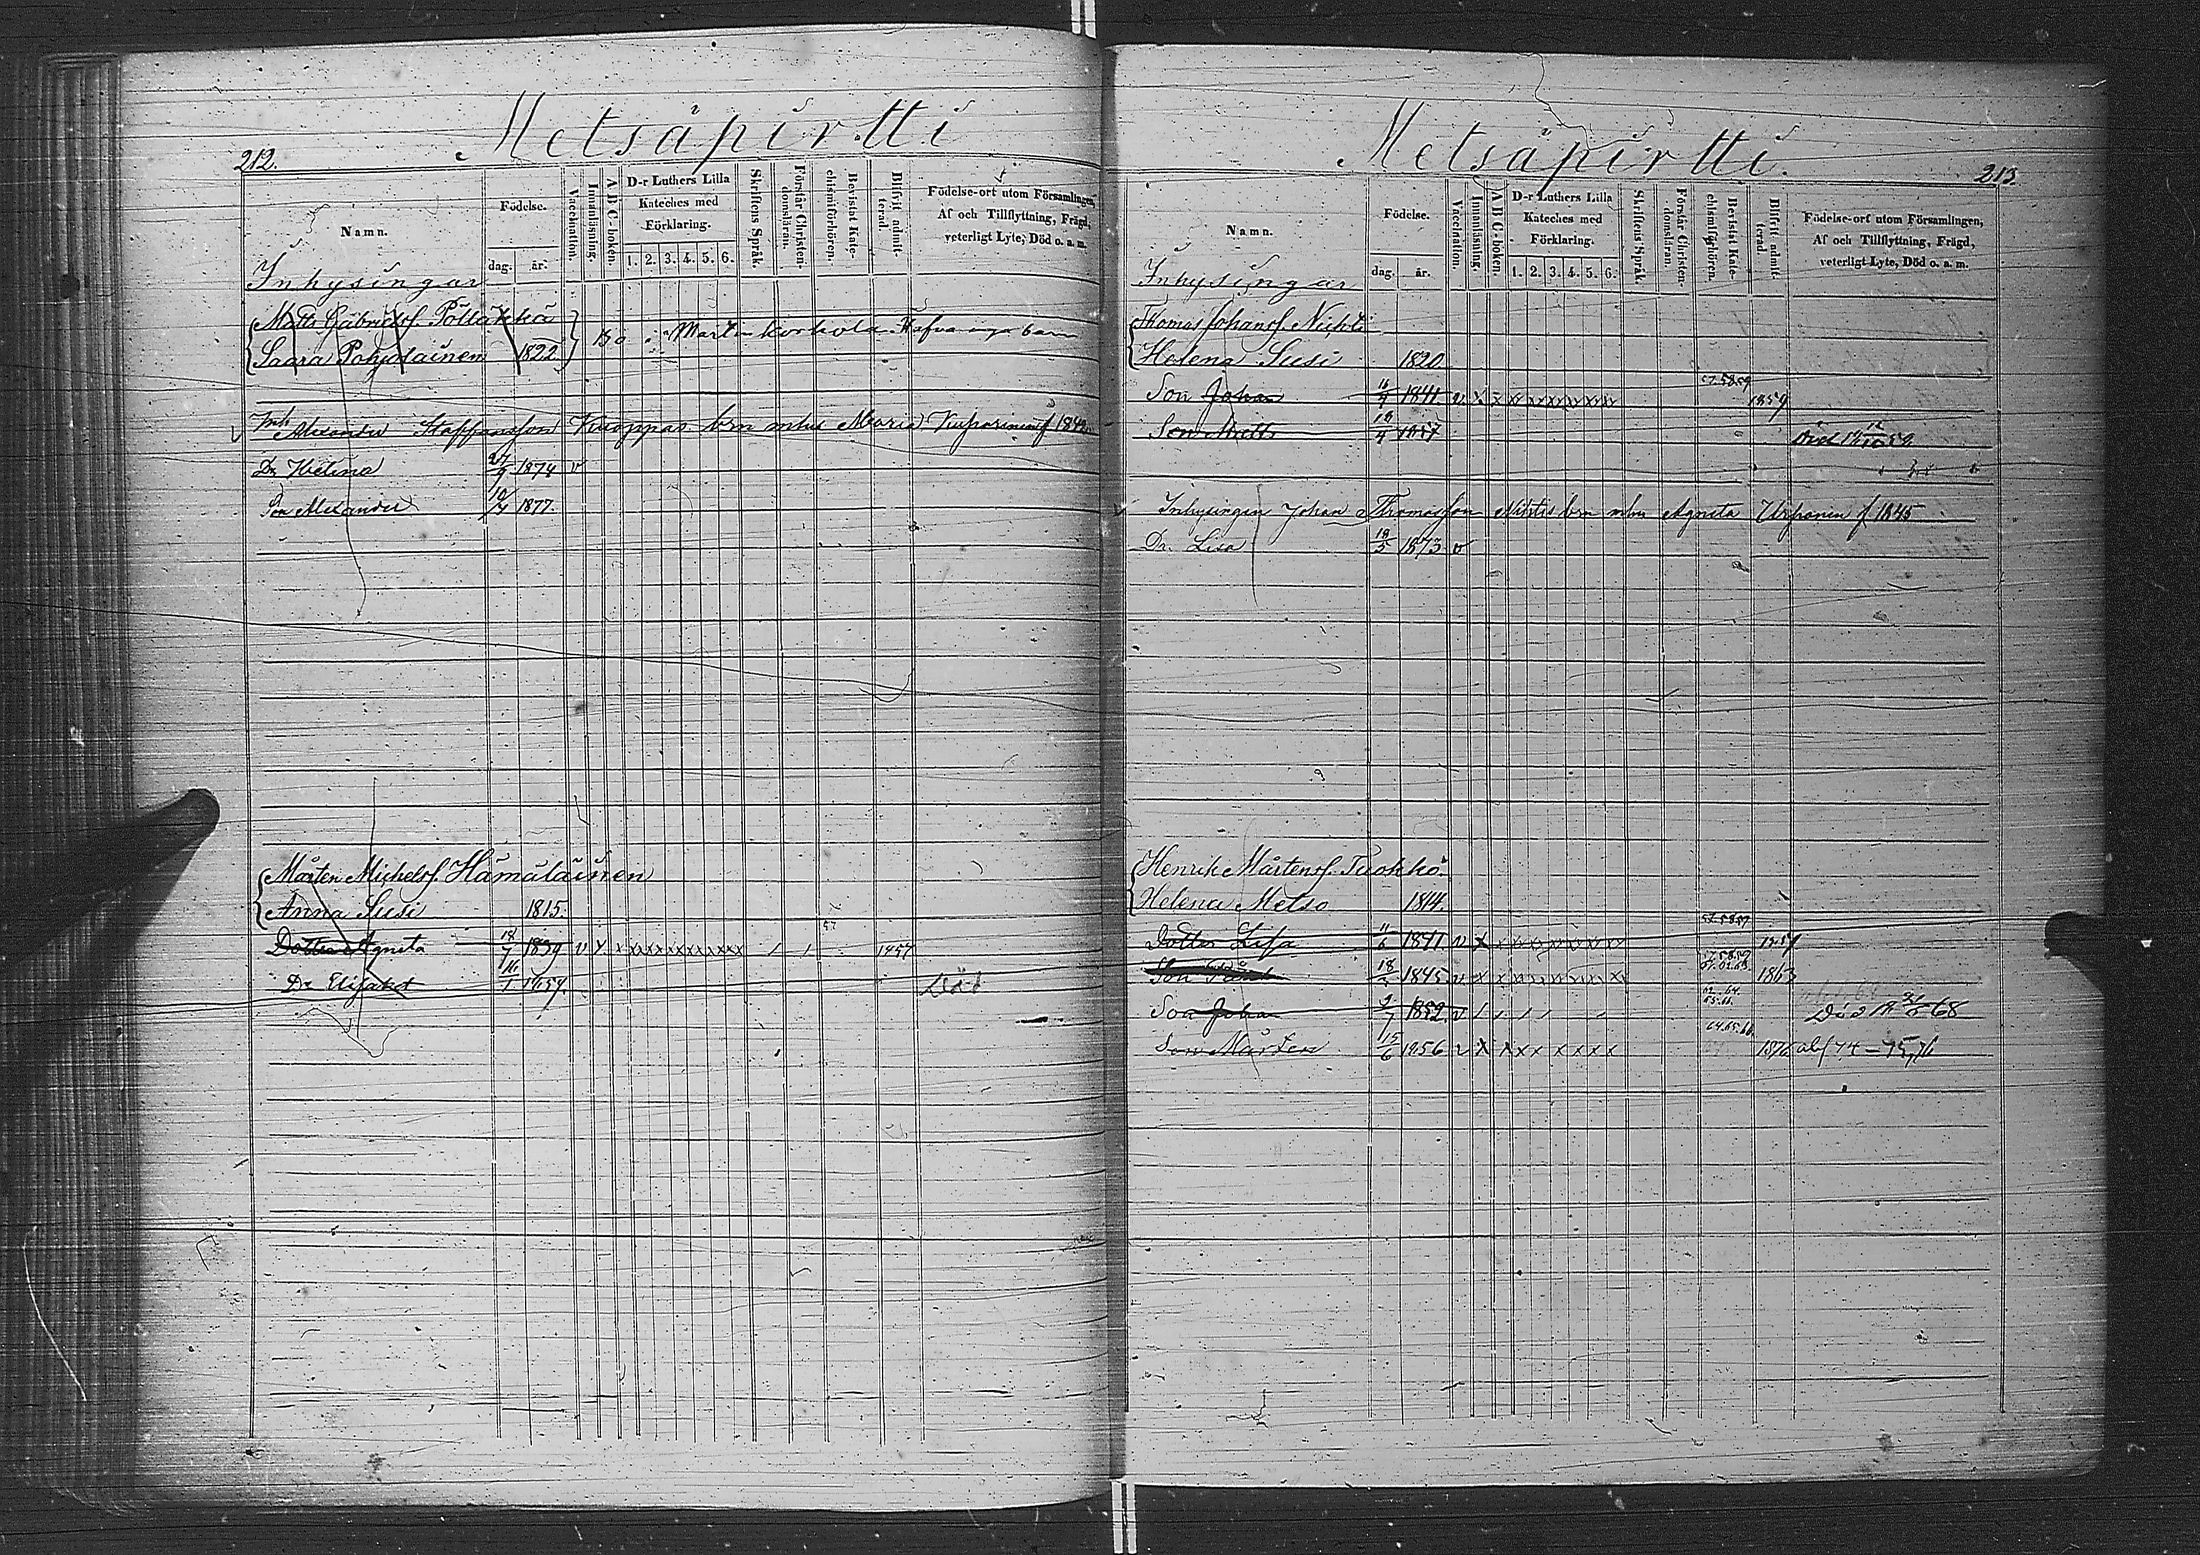 212.
Metsäpirtti
Namn.
Födelse.
dag.
år.
Vaccination.
Innanläsning.
A B C-boken.
D-r Luthers Lilla
Kateches med
Förklaring.
1. 2. 3. 4. 5. 6.
Skriftens Språk.
Förstår Christen-
domsläran.
Bevistat Kate-
chismiförhören.
Blifvit admit-
terad.
Födelse-ort utom Församlingen,
Af och Tillflyttning, Frägd,
veterligt Lyte, Död o. a. m.
Inhysingar
Matts Gabrielsf.
Saara Pohjolainen 1822
Alexander Staffansson Kuoppas brn mhu Maria f 1842
Dr Helena 27/9 1874 v
Son Alexander 10/7 1877.
Mårten Michelsf. Hämäläinen
Anna Susi 1815.
57
Dotter Agneta 18/7 1839 v x x x x x x x x x x 1857
Dr Elisabet 1857. Död
213.
Metsäpirtti.
Namn.
Födelse.
dag.
år.
Vaccination.
Innanläsning.
A B C-boken.
D-r Luthers Lilla
Kateches med
Förklaring.
1. 2. 3. 4. 5. 6.
Skriftens Språk.
Förstår Christen-
domsläran.
Bevistat Kate-
chismiförhören.
Blifvit admit-
terad.
Födelse-ort utom Församlingen,
Af och Tillflyttning, Frägd,
veterligt Lyte, Död o. a. m.
Inhysingar
Thomas Johansf. Nichti
Helena Susi 1820
57.58.59
Son Johan 1841. v. x 1859
Son Matts 18/4 1857 Död
Inhysingen Johan Thomasson Nihtis brn mhu Agneta Urponen f 1845
Dr. Lisa 18/5 1873 v
Henrik Mårtensf. Tuokko.
Helena Metso 1814.
57.58.59
Dotter Lisa 11/6 1841 v x
Son 1845. v x 1863
Son Johan 2/7 1852. v Död 68
64.65.66
Son Mårten 15/6 1856 v x x x x x x x x 1876